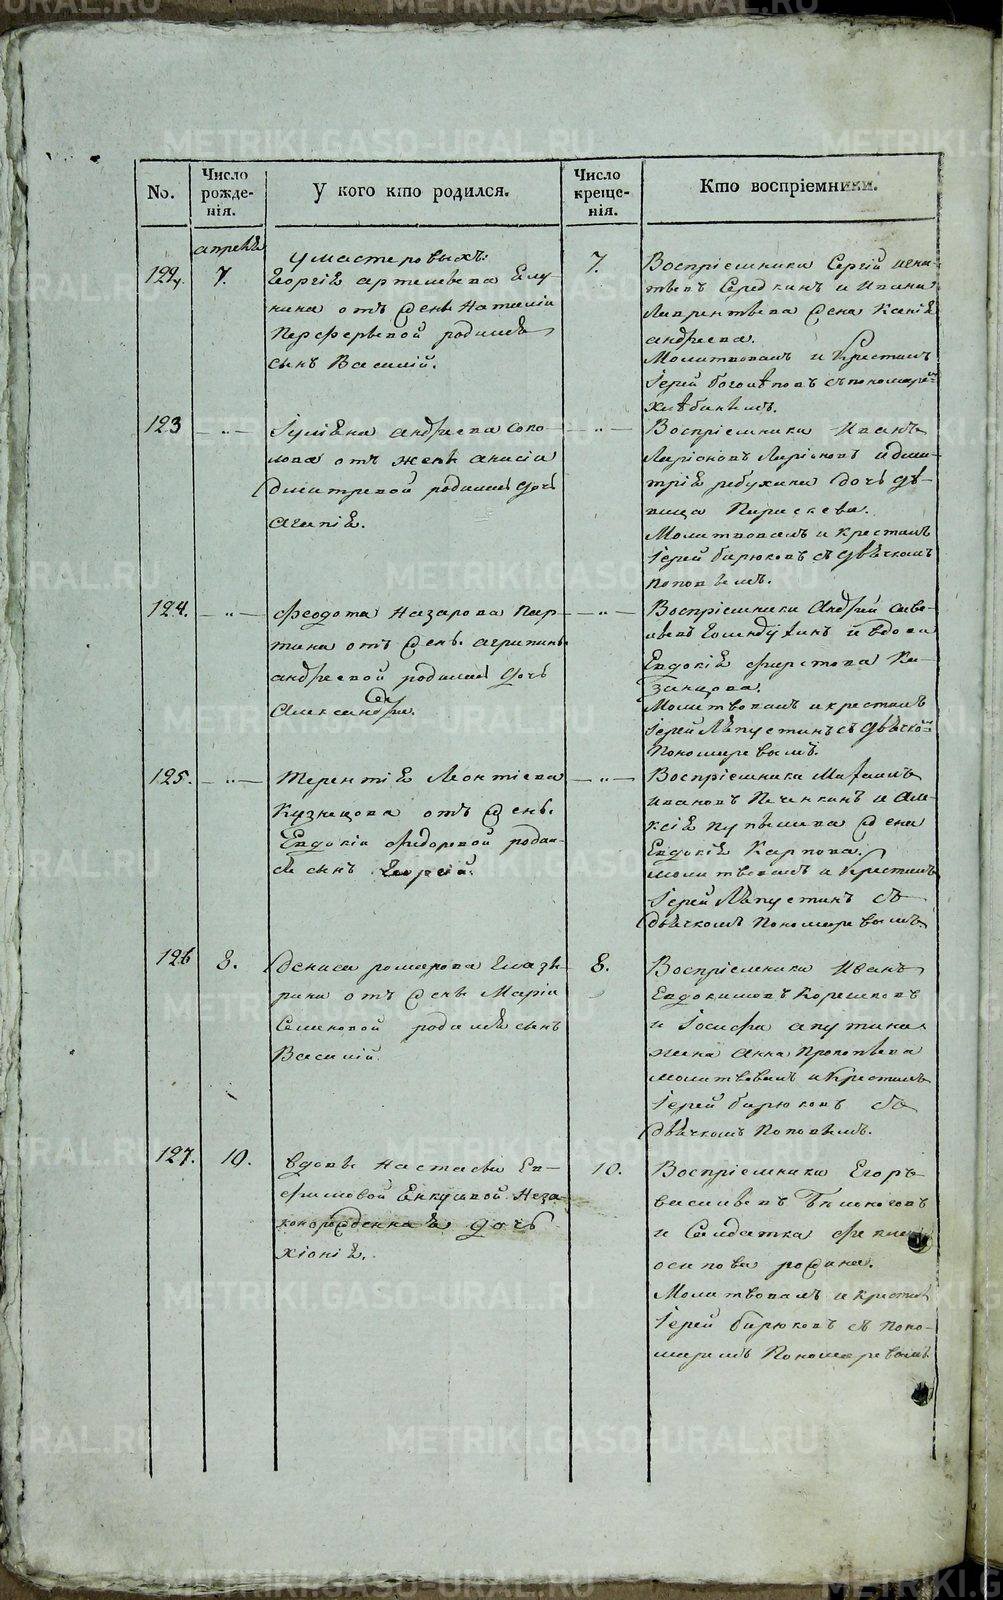 No.
Число рожде-
нія.
У кого кто родился.
Число креще-
нія.
Кто воспріемники.
апрель
У мастеровыхъ:
122. 7.
Георгія Артемьева
кина отъ жены Наталіи
Перферьевой родился
сынъ Василій.
7.
Воспріемники Сергій
Середкинъ и Ивана
Лаврентьева жена
Андреева.
Молитвовалъ и Крестилъ
Іерей Боголѣповъ съ пономаремъ
123 — „ —
Андреева Соко-
лова отъ жены Анисіи
Дмитревой родилась дочь
Агапія.
— „ —
Воспріемники Иванъ
Ларіоновъ Ларіоновъ и Дми-
трія Рябухина дочь дѣ-
вица Параскева.
Молитвовалъ и крестилъ
Іерей Бирюковъ съ дьячкомъ
Поповымъ.
124. — „ —
Феодота Назарова Пар-
тина отъ жены Агрипины
Андреевой родилась дочь
Александра.
— „ —
Воспріемники Андрей
и вдова
Евдокія Фирстова Ка-
занцова.
Молитвовалъ и крестилъ
Іерей Лапустинъ съ дьячко:
Пономаревымъ.
125. — „ —
Терентія Леонтіева
Кузнецова отъ жены
Евдокіи Федоровой родил-
ся сынъ Георгій.
— „ —
Воспріемники Михаилъ
Ивановъ Печенкинъ и Але-
ксія жена
Евдокія Карпова.
Молитвовалъ и Крестилъ
Іерей Лапустинъ съ
дьячкомъ Пономаревымъ
126 8.
Дениса Романова Глазы-
рина отъ жены Маріи
Семеновой родился сынъ
Василій.
8.
Воспріемники Иванъ
Евдокимовъ Корешковъ
и Іосифа Апутина
жена Анна Прокопьева
Молитвовалъ и Крестилъ
Іерей Бирюковъ съ
дьячкомъ Поповымъ.
127. 10.
Вдовы Настасьи Ев-
фимовой Неза-
конорожденная дочь
Хіонія.
10.
Воспріемники Егоръ
Васильевъ Бѣлоноговъ
и Солдатка
Осипова
Молитвовалъ и крестилъ
Іерей Бирюковъ съ поно-
маремъ Пономаревымъ
METRIKI.GASO-URAL.RU